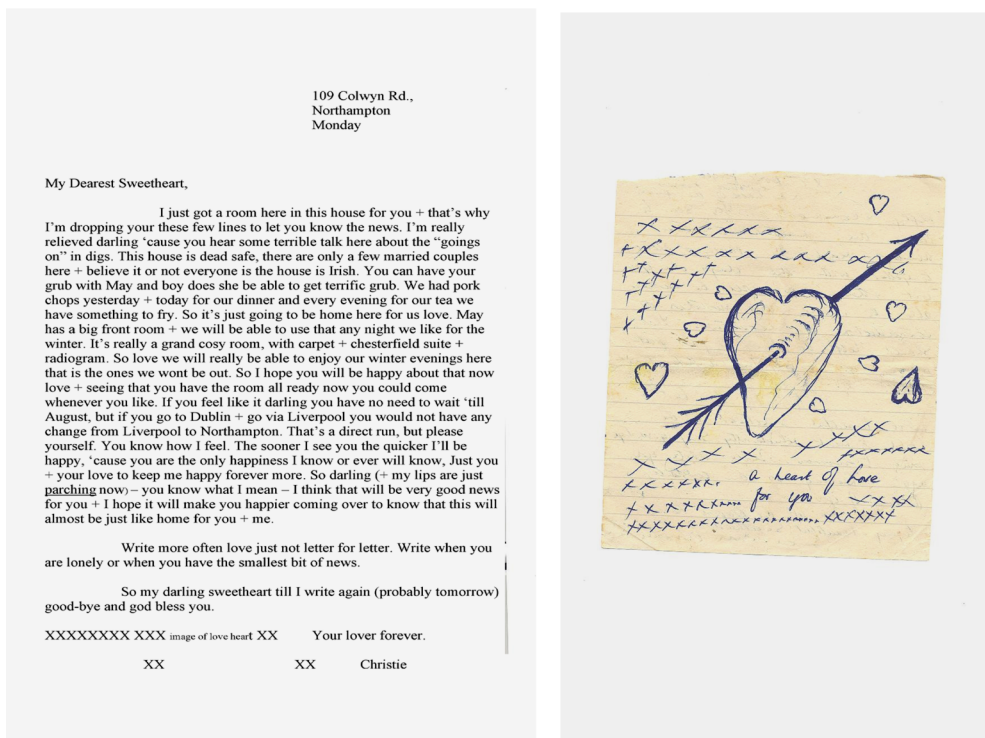 109 Colwyn Rd.,
Northampton
Monday
My Dearest Sweetheart,
I just got a room here in this house for you + that's why
I'm dropping your these few lines to let you know the news. I'm really
relieved darling 'cause you hear some terrible talk here about the "goings
on" in digs. This house is dead safe, there are only a few married couples
here + believe it or not everyone is the house is Irish. You can have your
grub with May and boy does she be able to get terrific grub. We had pork
chops yesterday + today for our dinner and every evening for our tea we
have something to fry. So it's just going to be home here for us love. May
has a big front room + we will be able to use that any night we like for the
winter. It's really a grand cosy room, with carpet + chesterfield suite +
radiogram. So love we will really be able to enjoy our winter evenings here
that is the ones we wont be out. So I hope you will be happy about that now
love + seeing that you have the room all ready now you could come
whenever you like. If you feel like it darling you have no need to wait 'till
August, but if you go to Dublin + go via Liverpool you would not have any
change from Liverpool to Northampton. That's a direct run, but please
yourself. You know how I feel. The sooner I see you the quicker I'll be
happy, 'cause you are the only happiness I know or ever will know, Just you
+ your love to keep me happy forever more. So darling (+ my lips are just
parching now) – you know what I mean – I think that will be very good news
for you + I hope it will make you happier coming over to know that this will
almost be just like home for you + me.
Write more often love just not letter for letter. Write when you
are lonely or when you have the smallest bit of news.
So my darling sweetheart till I write again (probably tomorrow)
good-bye and god bless you.
XXXXXXXX XXX image of love heart XX Your lover forever.
XX XX Christie
a heart of love
for you